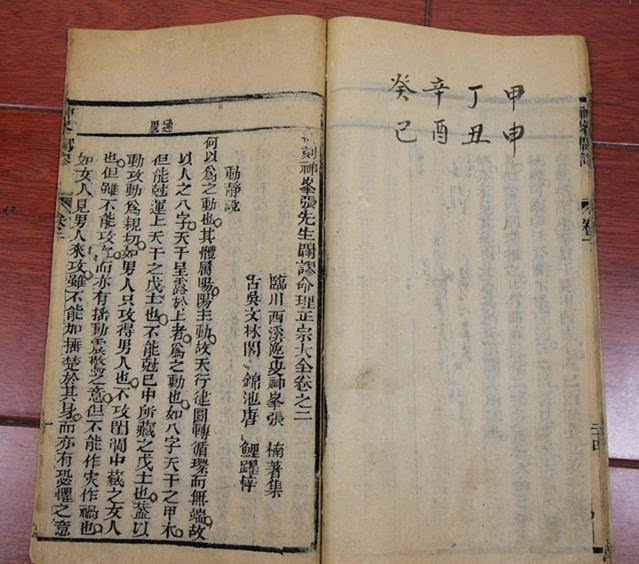 甲申
丁丑
辛酉
癸巳
刻神峯張先生闢謬命理正宗大全卷之二
臨川西溪逸叟神峯張 楠著集
古吳文林閣 錦池唐 鯉躍梓
動靜說
何以為之動也其體屬陽陽主動故天行健圓轉循環而無端故
以人之八字天干呈露於上者為之動也如八字天干之甲木
但能尅運上天干之戊土也不能尅巳中所藏之戊土也葢以
動攻動為親切如男人只攻得男人也不攻閨閫中藏之女人
也但雖不能攻之而亦有搖動震驚之意但不能作灾作禍也
如女人見男人來攻雖不能加捶楚於其身而亦有恐懼之意